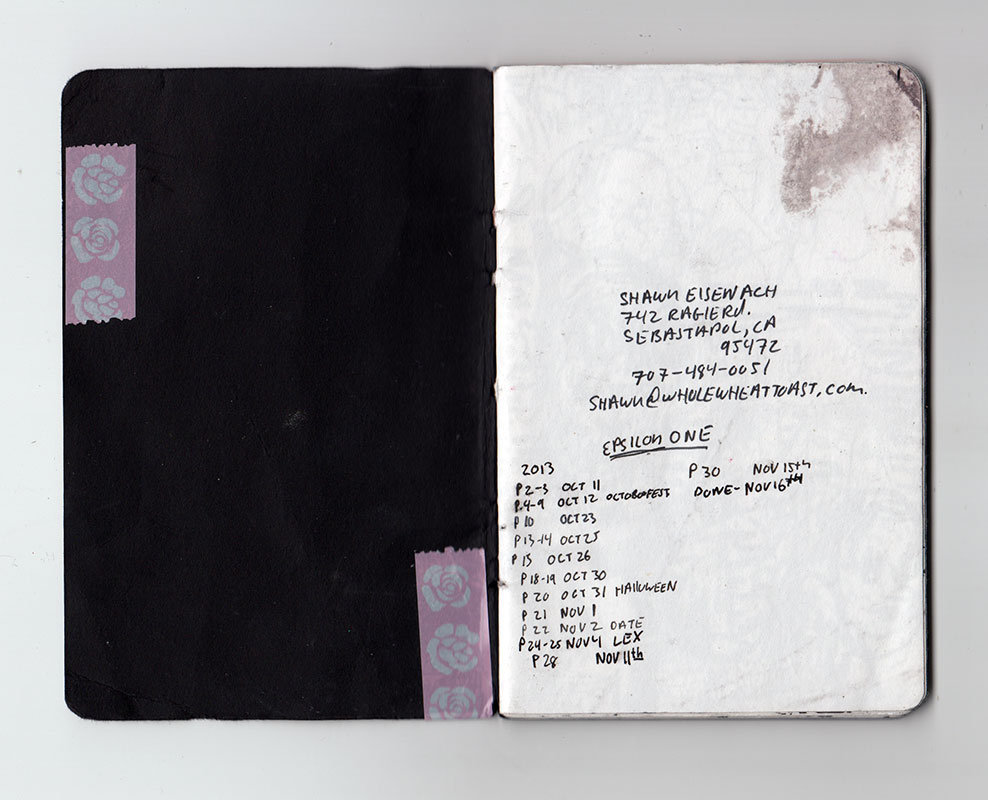 SHAWN EISEWACH
742 RAGLERd.
SEBASTAPOL, CA
95472
707-484-0051
SHAWN@WHOLEWHEATTOAST.com.
EPSILON ONE
2013
P2-3 OCT 11
P.4-9 OCT 12 OCTOBOFEST
P10 OCT23
P13-14 OCT25
P15 OCT 26
P18-19 OCT 30
P 20 OCT 31 HALLOWEEN
P 21 NOV 1
P 22 NOV 2 DATE
P24-25 NOV4 LEX
P28 NOV 11th
P 30 NOV 15th
DONE-NOV 16th